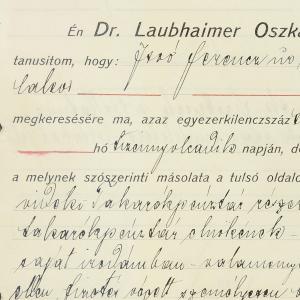 Én Dr. Laubhaimer Oszká
tanusitom, hogy: Joó Ferencz úr,
lakos
megkeresésére ma, azaz egyezerkilenczszáz
hó tizennyolcadik napján, de
a melynek szószerinti másolata a tulsó oldalo
vidéki Takarékpénztár részé
takarékpénztár elnökének
saját irodámban - valamenny
ellen fizetés végett személyesen